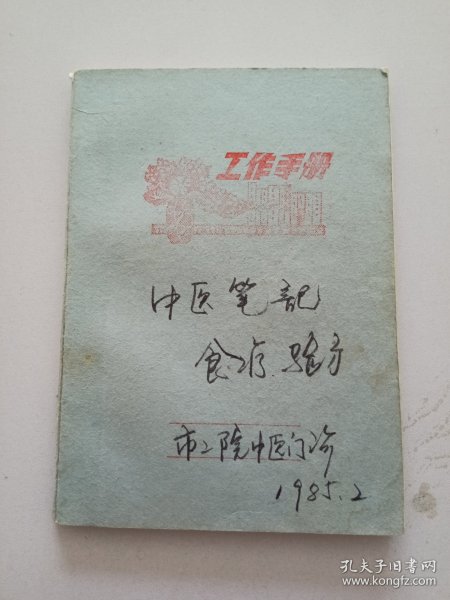 工作手册
中医笔记
食疗.验方
市二院中医门诊
1985.2
孔夫子旧书网
www.kongfz.com